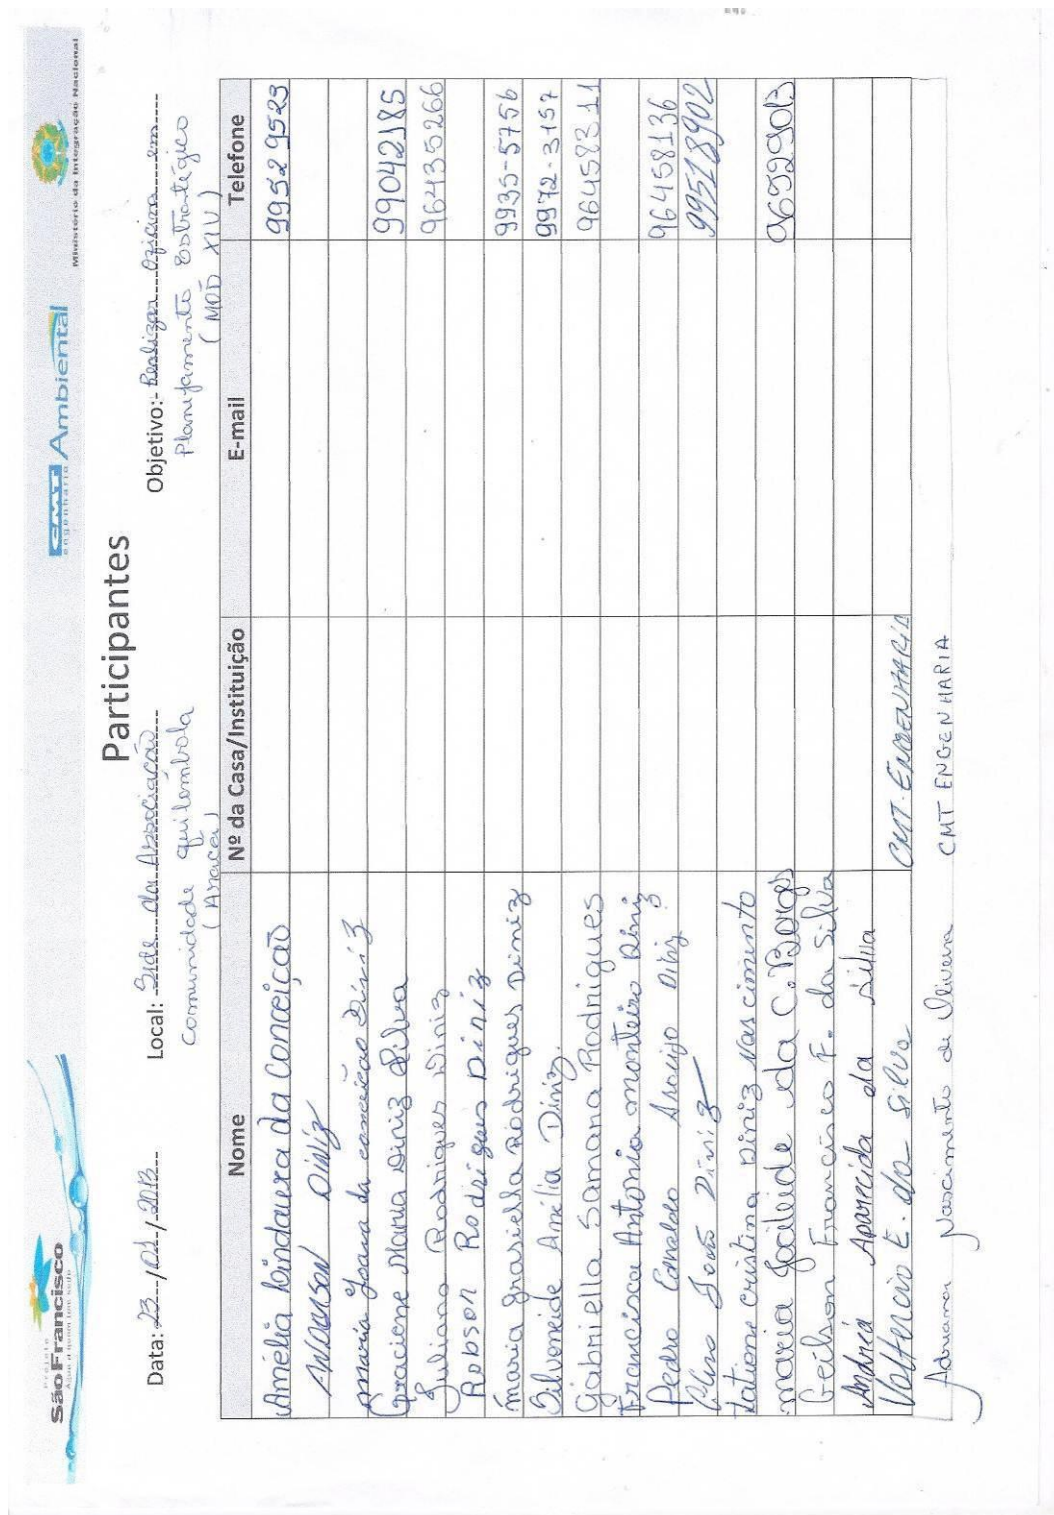 Projeto
São Francisco
Água a quem tem sede
CMT Ambiental
engenharia
Ministério da Integração Nacional
Participantes
Data: 23/01/2013 Local: Sede da Associação Objetivo: Realizar Oficina em
Comunidade quilombola Planejamento Estratégico
(Araçá) (MOD XIV)
Nome Nº da Casa/Instituição E-mail Telefone
Amélia Lindaura da Conceição 99529523
Diniz
maria Joana da conceição Diniz
Graciene Maria Diniz Silva 99042185
Juliana Rodrigues Diniz 96435266
Robson Rodrigues Diniz
maria grasiella Rodrigues Diniz 9935-5756
Silvoneide Amélia Diniz. 9972-3157
Gabriella Samana Rodrigues 96458311
Francisca Antonia monteiro Diniz
Pedro Araújo Diniz 96458136
João Diniz 99518902
Tatiane cristina Diniz Nascimento
maria da C. Borges 96929013
Geilson Francisco F. da Silva
Andréa Aparecida da Silva
Valtercio E. da Silva CMT. ENGENHARIA
Adriana Nascimento de Oliveira CMT ENGENHARIA